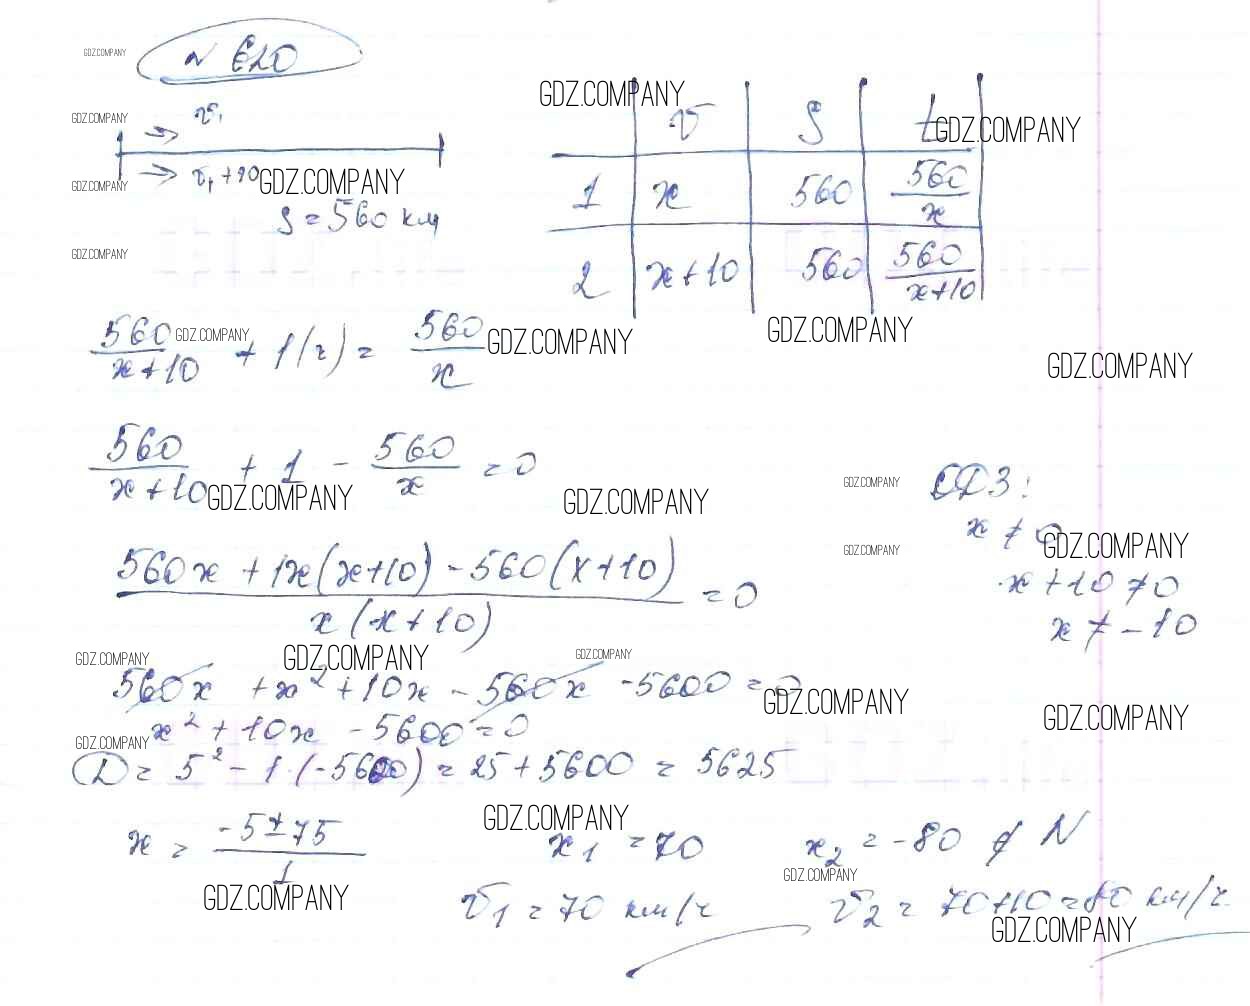 GDZ.COMPANY
N 620
GDZ.COMPANY
GDZ.COMPANY v₁
v S t
GDZ.COMPANY
GDZ.COMPANY v₁+10 GDZ.COMPANY
S = 560 км
1 x 560 560/x
GDZ.COMPANY
2 x+10 560 560/(x+10)
560/(x+10) GDZ.COMPANY + 1(ч) = 560/x GDZ.COMPANY
GDZ.COMPANY
GDZ.COMPANY
560/(x+10) + 1 - 560/x = 0
GDZ.COMPANY GDZ.COMPANY
GDZ.COMPANY ОДЗ:
x ≠ 0
GDZ.COMPANY GDZ.COMPANY
x+10 ≠ 0
x ≠ -10
(560x + 1x(x+10) - 560(x+10))/(x(x+10)) = 0
GDZ.COMPANY GDZ.COMPANY GDZ.COMPANY
560x + x² + 10x - 560x - 5600 = 0
GDZ.COMPANY GDZ.COMPANY
x² + 10x - 5600 = 0
GDZ.COMPANY
D = 5² - 1·(-5600) = 25 + 5600 = 5625
GDZ.COMPANY
x = (-5±75)/1 x₁ = 70 x₂ = -80 ∉ N
GDZ.COMPANY GDZ.COMPANY
v₁ = 70 км/ч v₂ = 70+10 = 80 км/ч
GDZ.COMPANY